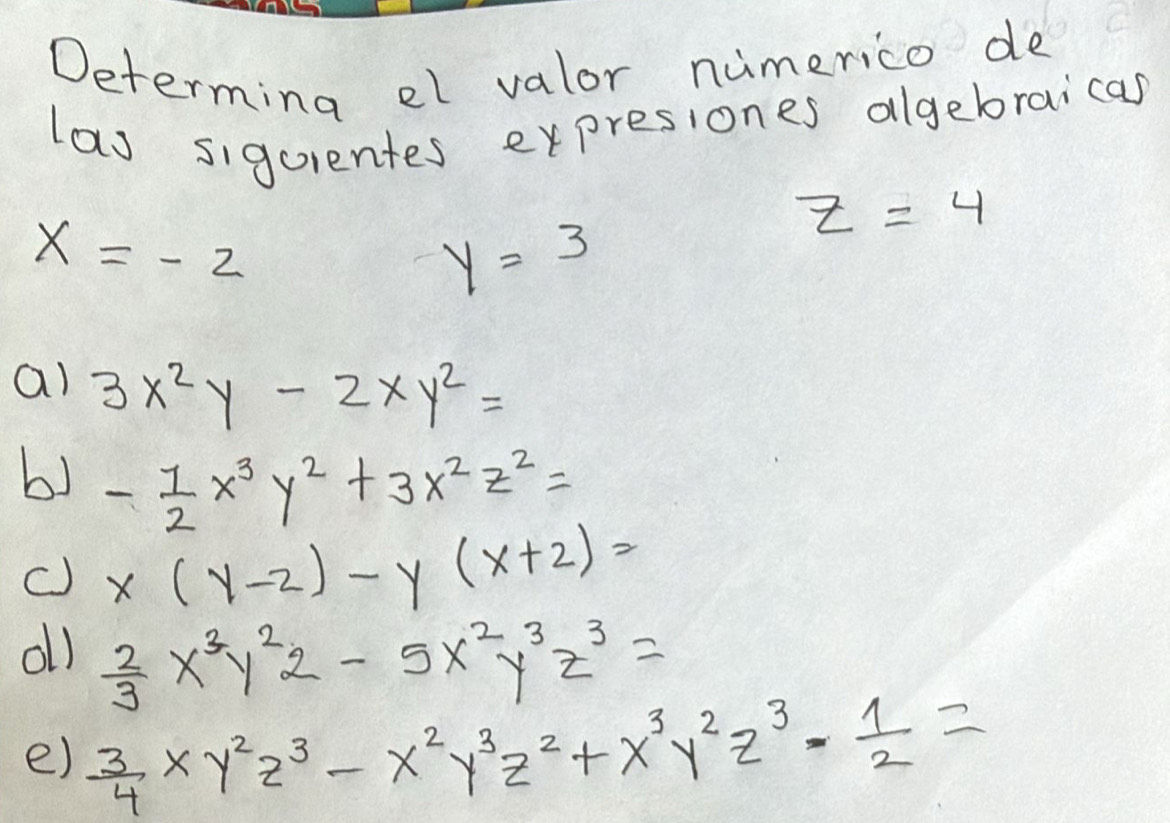 Determina el valor númerico de
las siguientes expresiones algebraicas
x = - 2 y = 3 z = 4
a) 3x²y - 2xy² =
b) - 1/2 x³y² + 3x²z² =
c) x (y-2) - y (x+2) =
d) 2/3 x³y²2 - 5x²y³z³ =
e) 3/4 xy²z³ - x²y³z² + x³y²z³ - 1/2 =